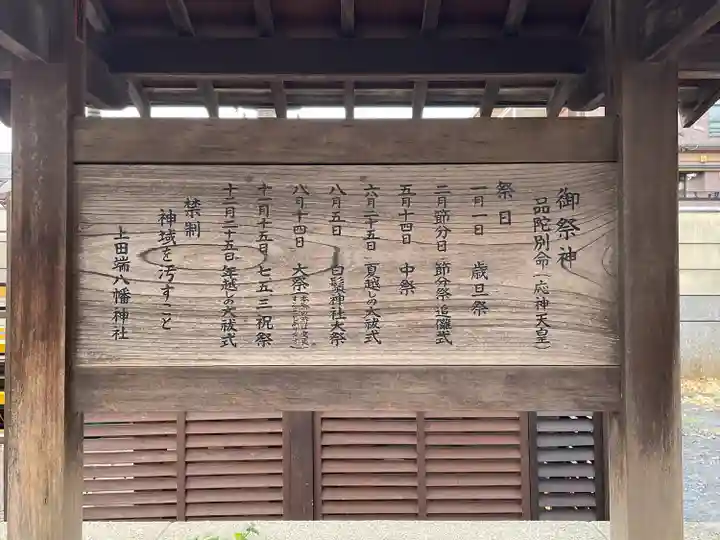 御祭神
品陀別命(応神天皇)
祭日
一月一日 歳旦祭
二月節分日 節分祭追儺式
五月十四日 中祭
六月二十五日 夏越しの大祓式
八月五日 白鬚神社大祭
八月十四日 大祭
十一月十五日 七五三祝祭
十二月二十五日 年越しの大祓式
禁制
神域を汚すこと
上田端八幡神社